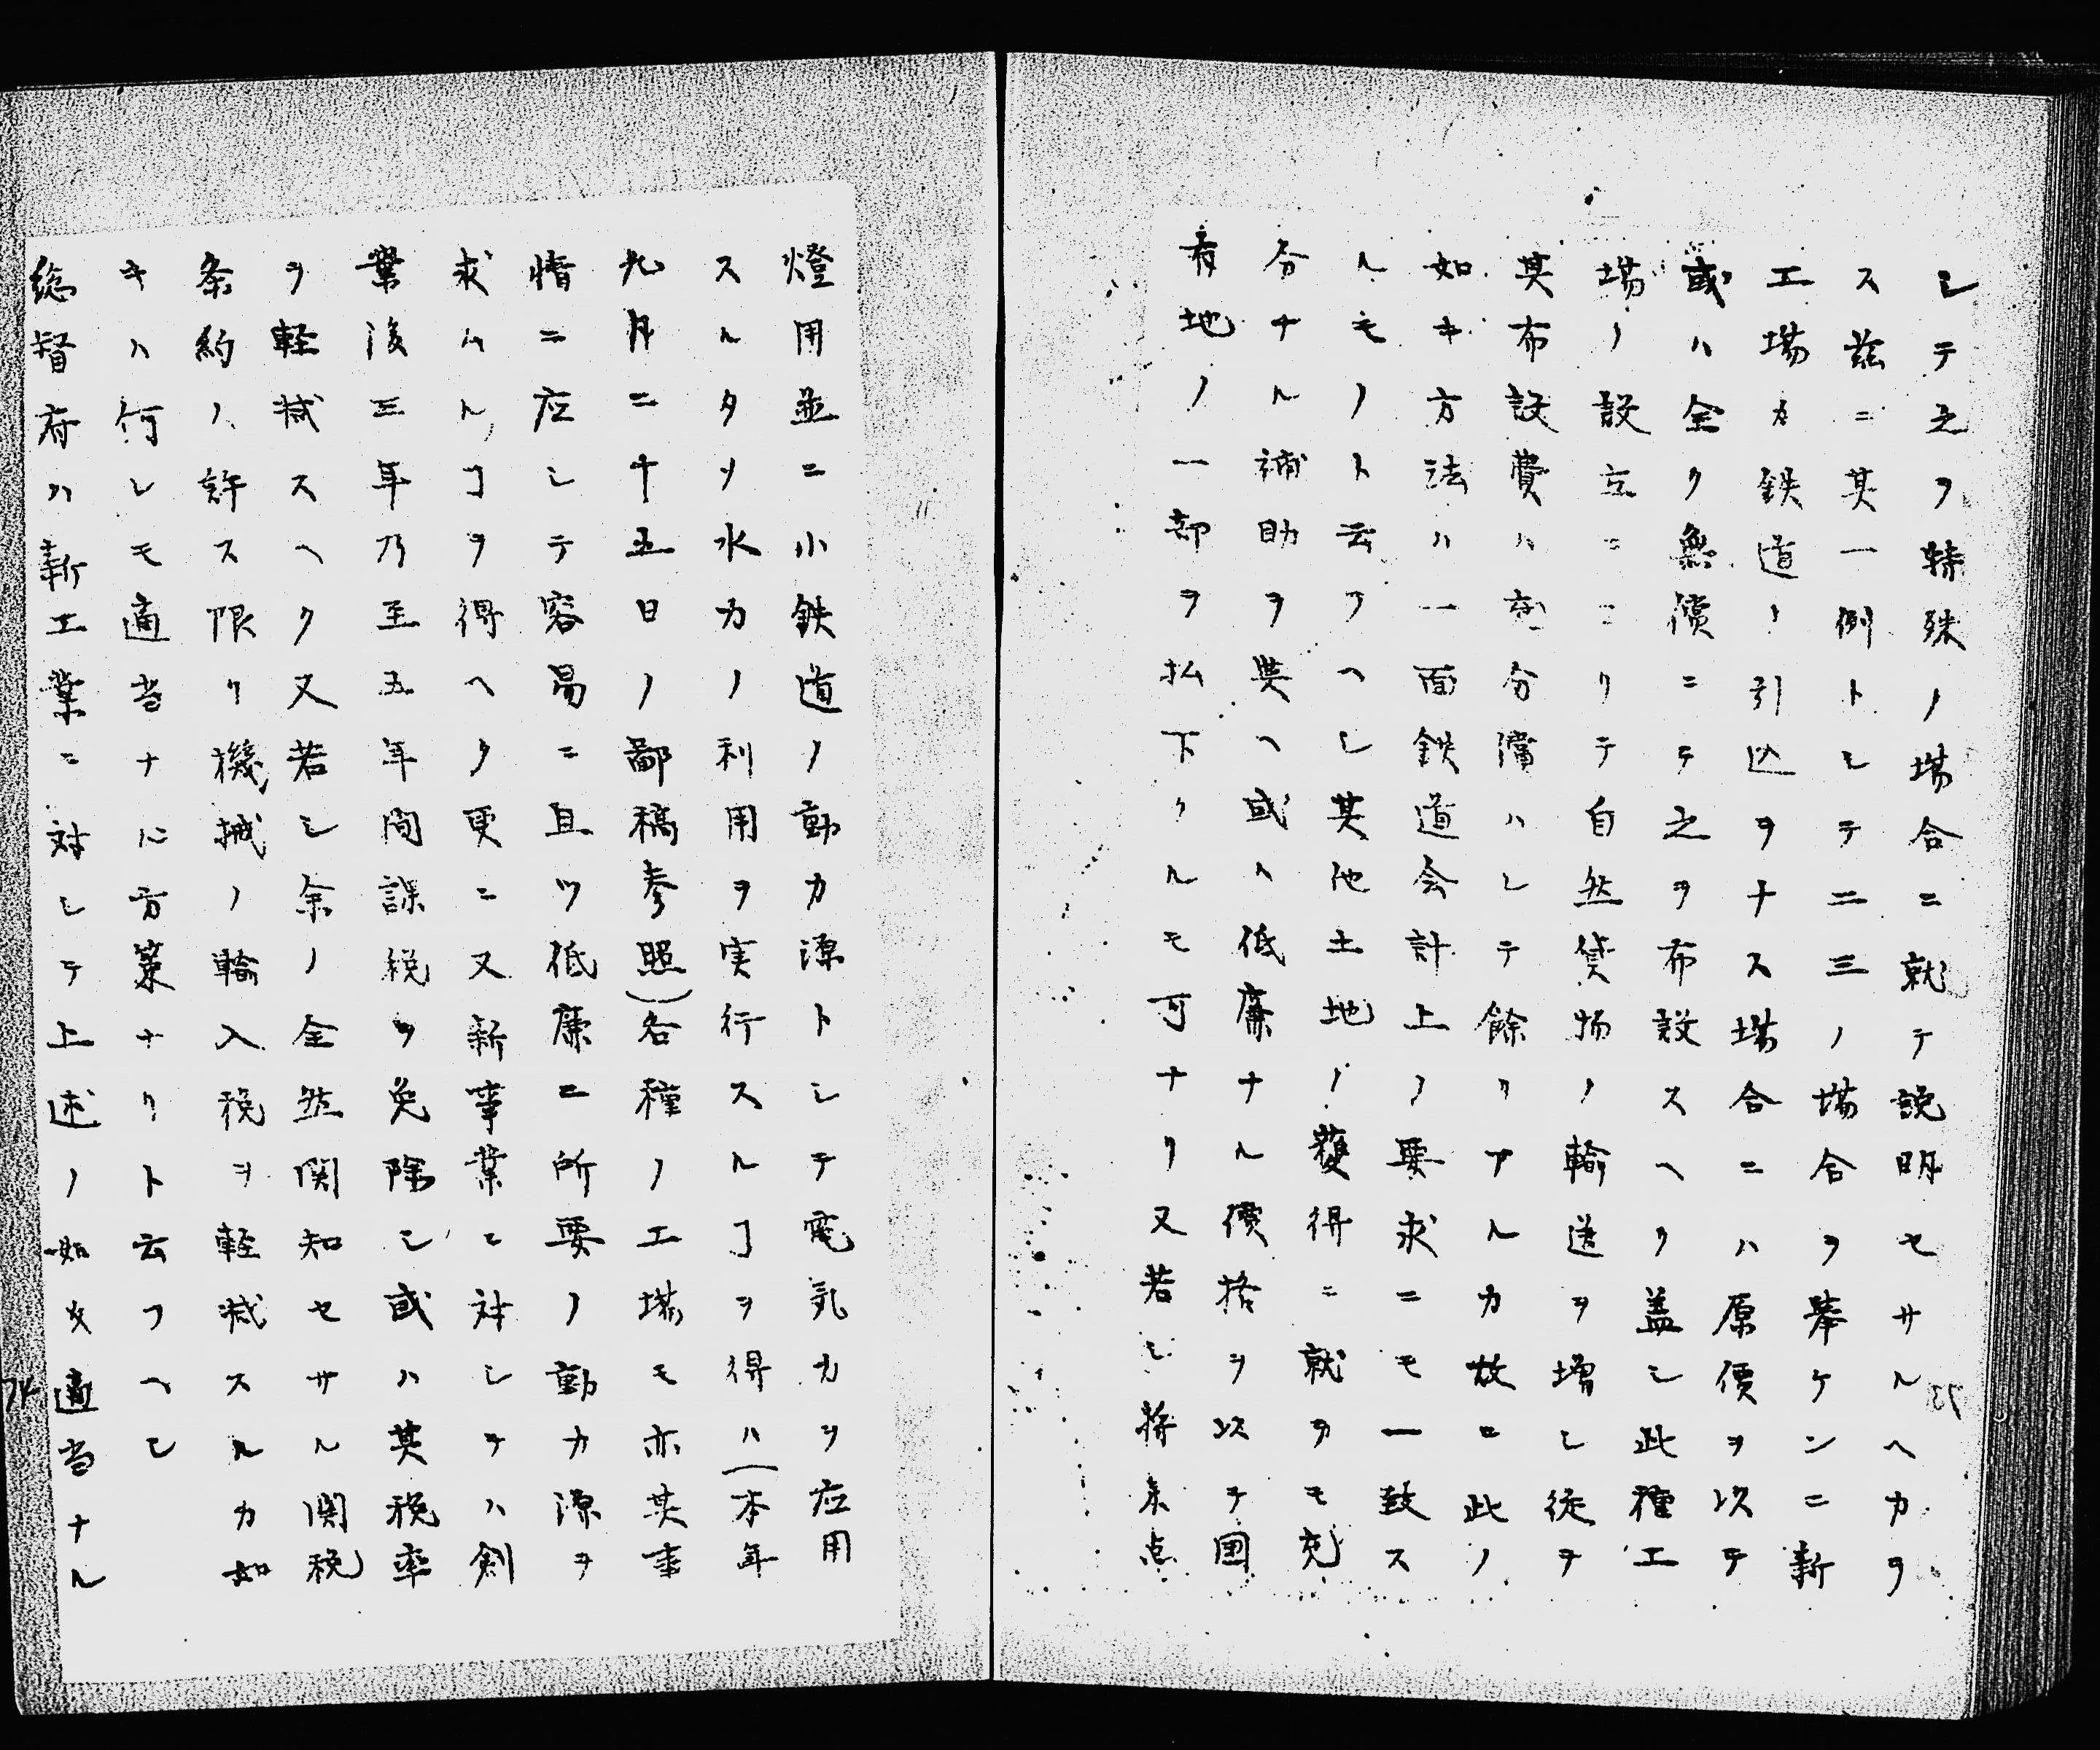 シテ之ヲ特殊ノ場合ニ就テ説明セサルヘカラ
ス茲ニ其一例トシテ二三ノ場合ヲ挙ケンニ新
工場カ鉄道ノ引込ヲナス場合ニハ原價ヲ以テ
或ハ全ク無償ニテ之ヲ布設スヘク盖シ此種工
場ノ設立ニヨリテ自然貨物ノ輸送ヲ増シ従テ
其布設費ハ充分償ハレテ餘リアルカ故ニ此ノ
如キ方法ハ一面鉄道会計上ノ要求ニモ一致ス
ルモノト云フヘシ其他土地ノ獲得ニ就テモ充
分ナル補助ヲ與ヘ或ハ低廉ナル價格ヲ以テ国
有地ノ一部ヲ払下クルモ可ナリ又若シ將来点
燈用並ニ小鉄道ノ動力源トシテ電気力ヲ応用
スルタメ水力ノ利用ヲ実行スルヿヲ得ハ(本年
九月二十五日ノ鄙稿参照)各種ノ工場モ亦其事
情ニ応シテ容易ニ且ツ低廉ニ所要ノ動力源ヲ
求ムルヿヲ得ヘク更ニ又新事業ニ対シテハ創
業後三年乃至五年間課税ヲ免除シ或ハ其税率
ヲ軽減スヘク又若シ余ノ全然関知セサル関税
条約ノ許ス限リ機械ノ輸入税ヲ軽減スルカ如
キハ何レモ適当ナル方策ナリト云フヘシ
総督府ハ新工業ニ対シテ上述ノ如キ適当ナル